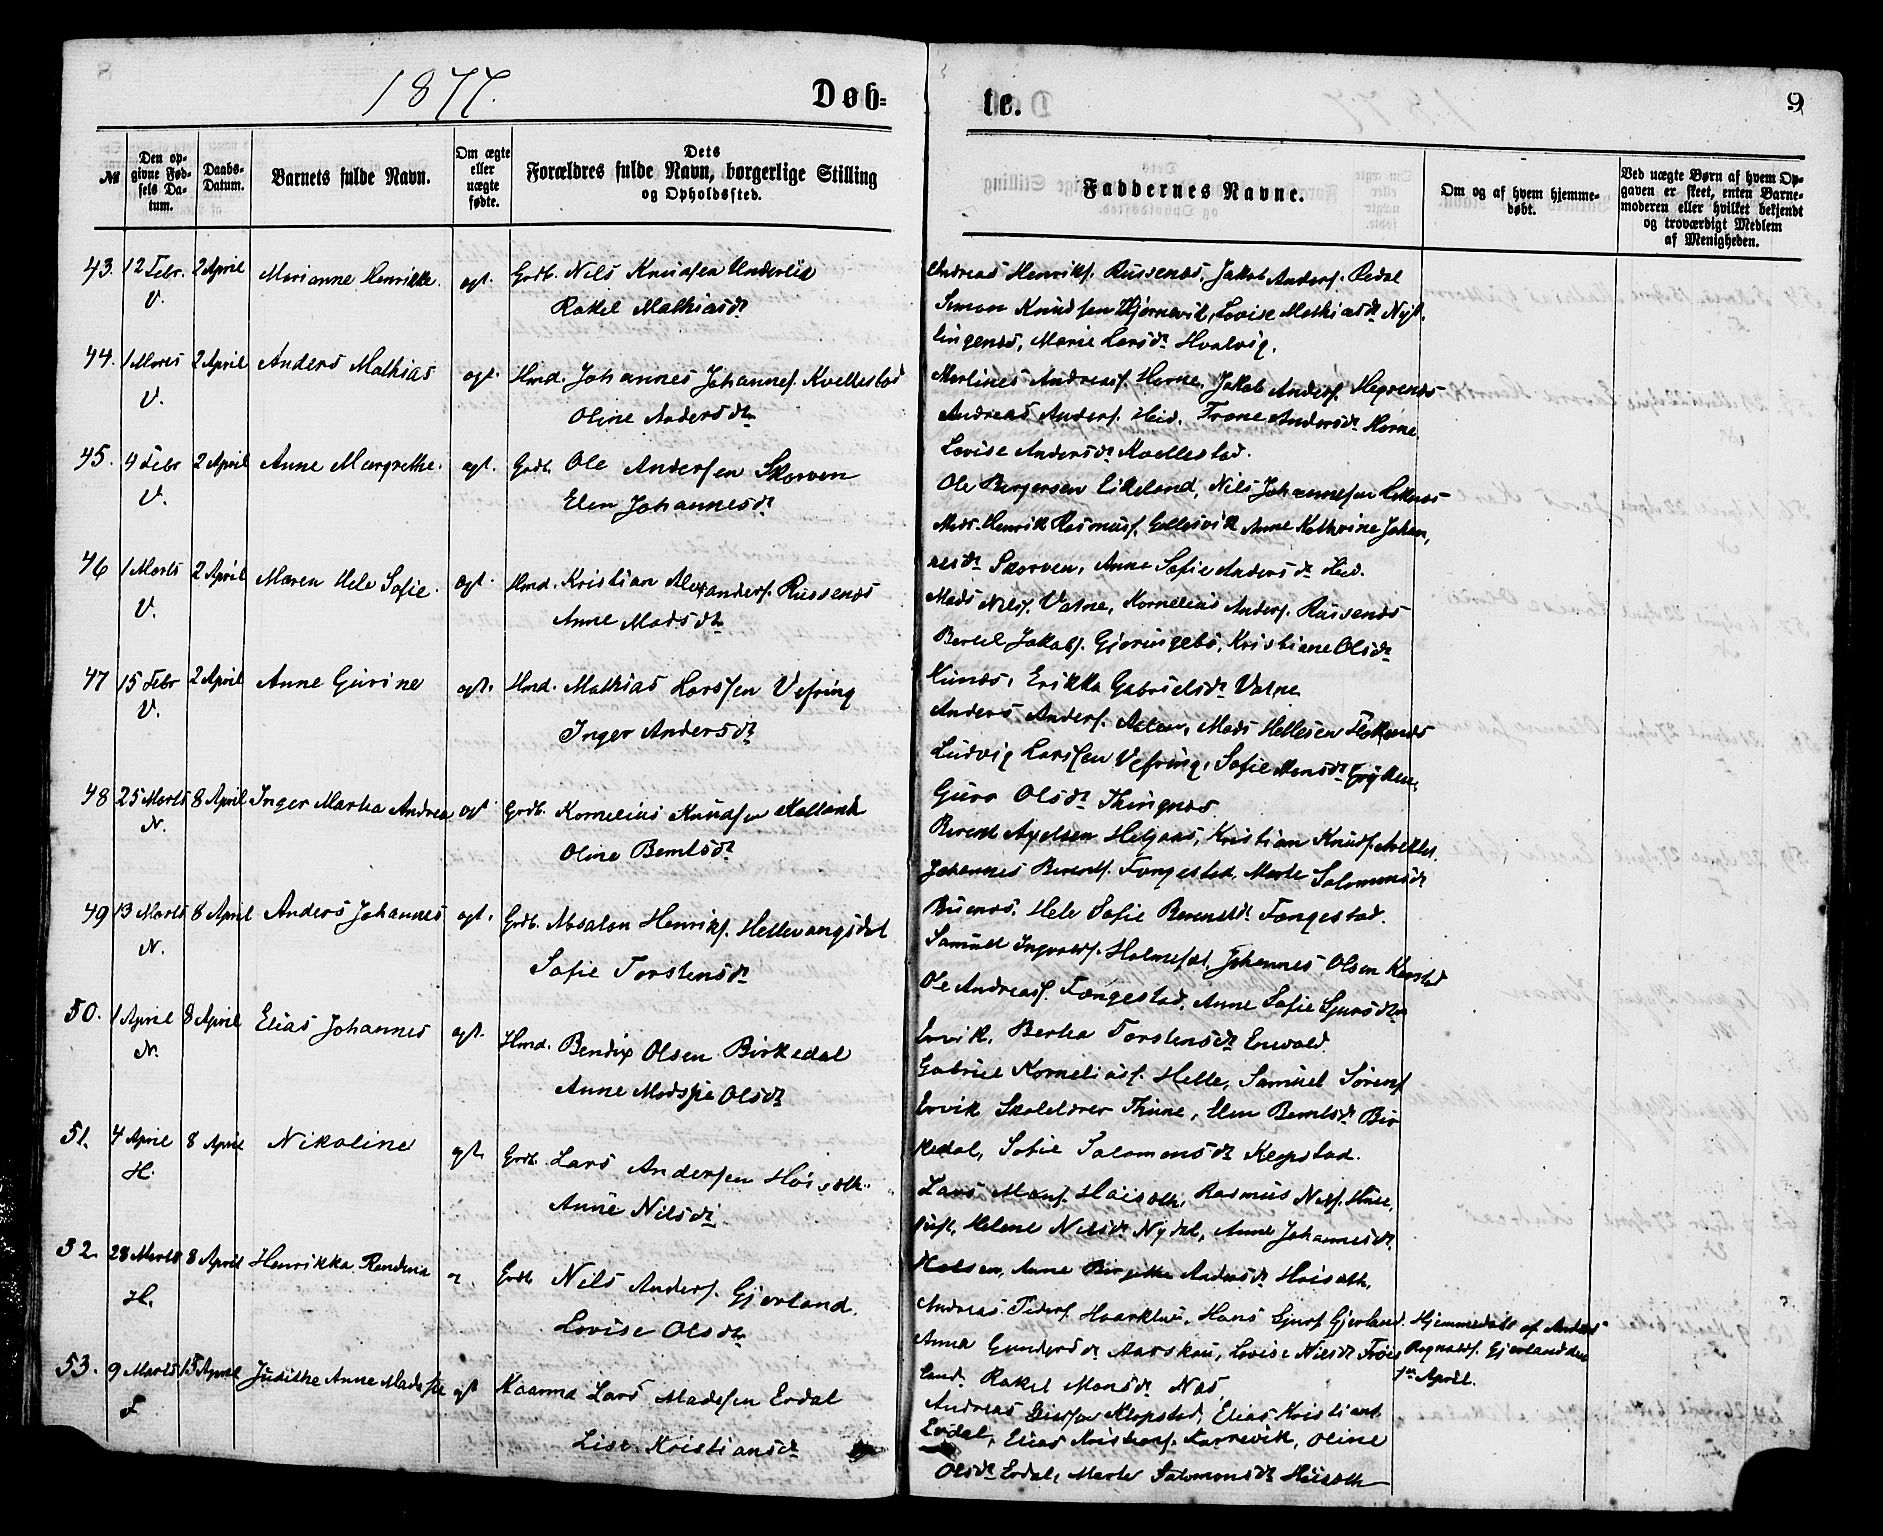 1877.
Døb=
te.
9
№
Den op-
givne Fød-
sels Da-
tum.
Daabs-
Datum.
Barnets fulde Navn.
Om ægte
eller
uægte
fødte.
Dets
Forældres fulde Navn, borgerlige Stilling
og Opholdssted.
Faddernes Navne.
Om og af hvem hjemme-
døbt.
Ved uægte Børn af hvem Op-
gaven er skeet, enten Barne-
moderen eller hvilket bekjendt
og troværdigt Medlem
af Menigheden.
43. 12 Febr. 2 April Marianne Henrikke. ægt. Grdb. Nils Knudsen Underlid
V. Rakel Mathiasdr
Andreas Henriks. Russenes, Jakob Anders. Redal
Simon Knudsen Hjørnevik, Lovise Mathiasdr Nyt-
lingenes, Marie Larsdr Hvalvig.
44. 1 Marts 2 April Anders Mathias ægt. Hmd. Johannes Johannes. Kvellestad
V. Oline Andersdtr
Martines Andreas. Horne, Jakob Anders. Hegrenæs
Andreas Anders. Heid, Trone Andersdr Horne
Lovise Andersdr Kvellestad.
45. 4 Febr 2 April Anne Margrethe. ægt. Grdb. Ole Andersen Skorven
V. Elen Johannesdr
Ole Bergersen Eikeland, Nils Johannesen
Mads Henrik Rasmus. Gullesvik Anne Kathrine Johan-
nesdr Skorven, Anne Sofie Andersdr Heid.
46 1 Marts 2 April Maren Hele Sofie. ægt. Hmd. Kristian Alexanders. Russenes
V. Anne Madsdtr
Mads Nils. Vatne, Kornelius Anders. Russenes
Bertel Jakobs. Gjøringebø, Kristiane Olsdr
Kunes, Erikka Gabrielsdr Vatne
47 15 Febr 2 April Anne Gurine ægt. Hmd. Mathias Larssen Vefring
V. Inger Andersdr
Anders Anders. Mads Hellesen
Ludvig Larssen Vefring, Sofie Monsdr
Guro Olsdr Thingnes
48 25 Marts 8 April Inger Marta Andrea ægt Grdb. Kornelius Knudsen Kalland
N. Oline Berntsdr
Berent Axelsen Helgaas, Kristian Knuds.
Johannes Berents. Fængestad, Marte Salomonsdr
Buenes, Hele Sofie Berentsdr. Fængestad.
49 13 Marts 8 April Anders Johannes ægt. Grdb. Absalon Henriks. Hellevangsdal
N. Sofie Torstensdr
Samuel Ingvalds. Holmesæt, Johannes Olsen
Ole Andreas. Fængestad, Anne Sofie Sjursdtr
Ervik, Berta Torstensdr Envald.
50. 1 April 8 April Elias Johannes ægt. Hmd. Bendix Olsen Birkedal
N. Anne Madspie Olsdr
Gabriel Kornelius. Helle, Samuel Sørens
Ervik Skolelærer Thune, Elen Berntsdr Bir-
kedal, Sofie Salomonsdr Klepstad.
51. 4 April 8 April Nikoline ægt. Grdb. Lars Andersen Høisæth.
H. Anne Nilsdr
Lars Mons. Høisæth, Rasmus Nils. Huse,
Helene Nilsdr Anne Johannesdr.
Anne Birgitte Andersdr Høisæth.
52. 28 Marts 8 April Henrikka Randina Grdb Nils Anders. Gjerland.
H. Lovise Olsdtr
Andreas Peders. Haarklau, Hans Sjurs. Gjerland
Anna Gundersdr Aarskau, Lovise Nilsdr Frøis-
land, Rakel Monsdr Nes
Hjemmedøbt af Anders
Ragnalds. Gjerland den
1te April.
53. 9 Marts 15 April Judithe Anne Madspie ægt Kaarmd Lars Madssen Erdal
F Lise Kristiansdr
Andreas Klepstad, Elias Kristians.
Erdal, Elias Kristians. Karrevik, Oline
Olsdr Erdal, Marte Salomonsdr Høisæth